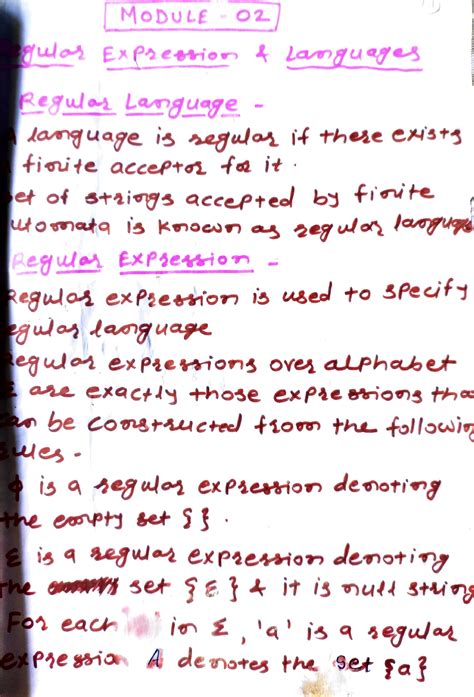 MODULE - 02
egular Expression & Languages
Regular Language -
A language is regular if there exists
finite acceptor for it.
et of strings accepted by finite
utomata is known as regular language
Regular Expression -
Regular expression is used to specify
egular language
Regular expressions over alphabet
Σ are exactly those expressions tha
can be constructed from the following
rules -
ϕ is a regular expression denoting
the empty set { }.
Σ is a regular expression denoting
the set {Σ} & it is null string
For each in Σ, 'a' is a regular
expressio A denotes the set {a}